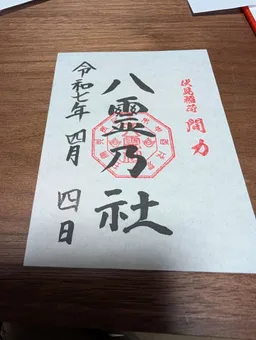 伏見稲荷 間力
八霊乃社
令和七年 四月 四日